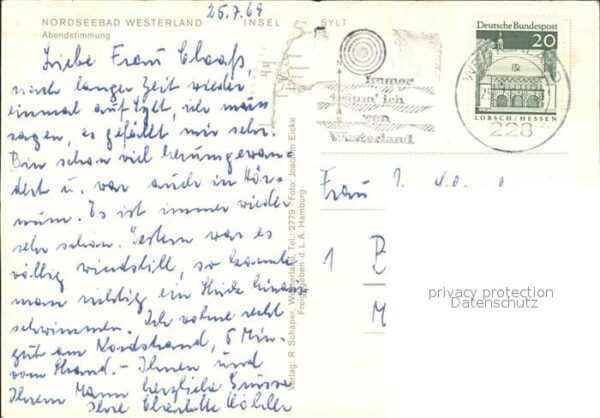 25.7.69
NORDSEEBAD WESTERLAND INSEL SYLT
Abendstimmung
Liebe Frau Claaß,
nach langer Zeit wieder
einmal auf Sylt, ich muss
sagen, es gefällt mir sehr.
Bin schon viel herumgewan-
dert u. war auch in Hör-
num. Es ist immer wieder
sehr schön. Gestern war es
völlig windstill, so konnte
man richtig ein Stück hinaus
schwimmen. Ich wohne recht
gut am Nordstrand, 5 Min
vom Strand. - Ihnen und
Ihrem Mann herzliche Grüsse
Ihre Charlotte Köhler
Verlag: R. Schaper, Westerland, Tel.: 2779 / Foto: Joachim Eicke
Freigegeben d. L. A. Hamburg
Immer
träum' ich
von
Westerland
Deutsche Bundespost
20
LORSCH/HESSEN
228
Frau
1 B
M
privacy protection
Datenschutz